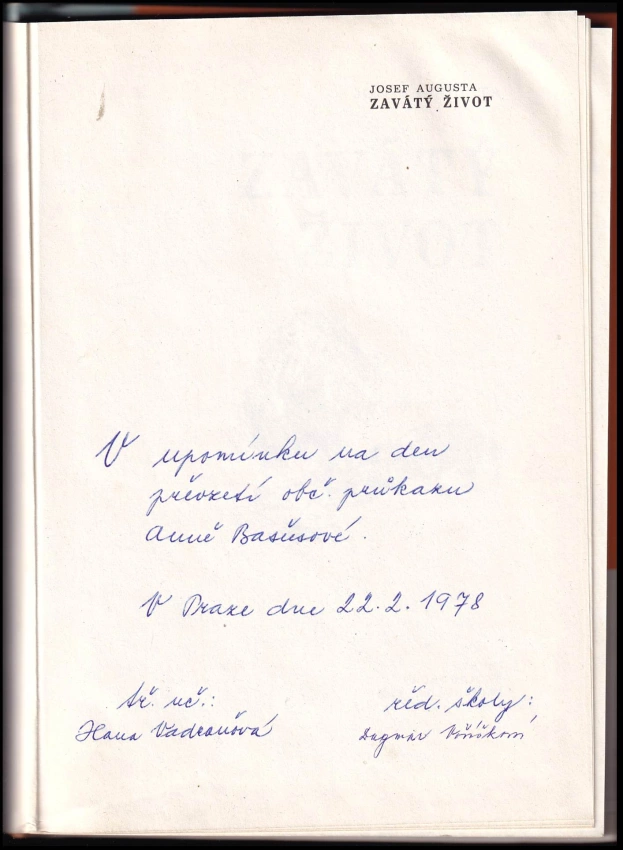 JOSEF AUGUSTA
ZAVÁTÝ ŽIVOT
V upomínku na den
převzetí obč. průkazu
Anně Bašusové.
V Praze dne 22. 2. 1978
tř. uč.: řed. školy:
Hana Dagmar